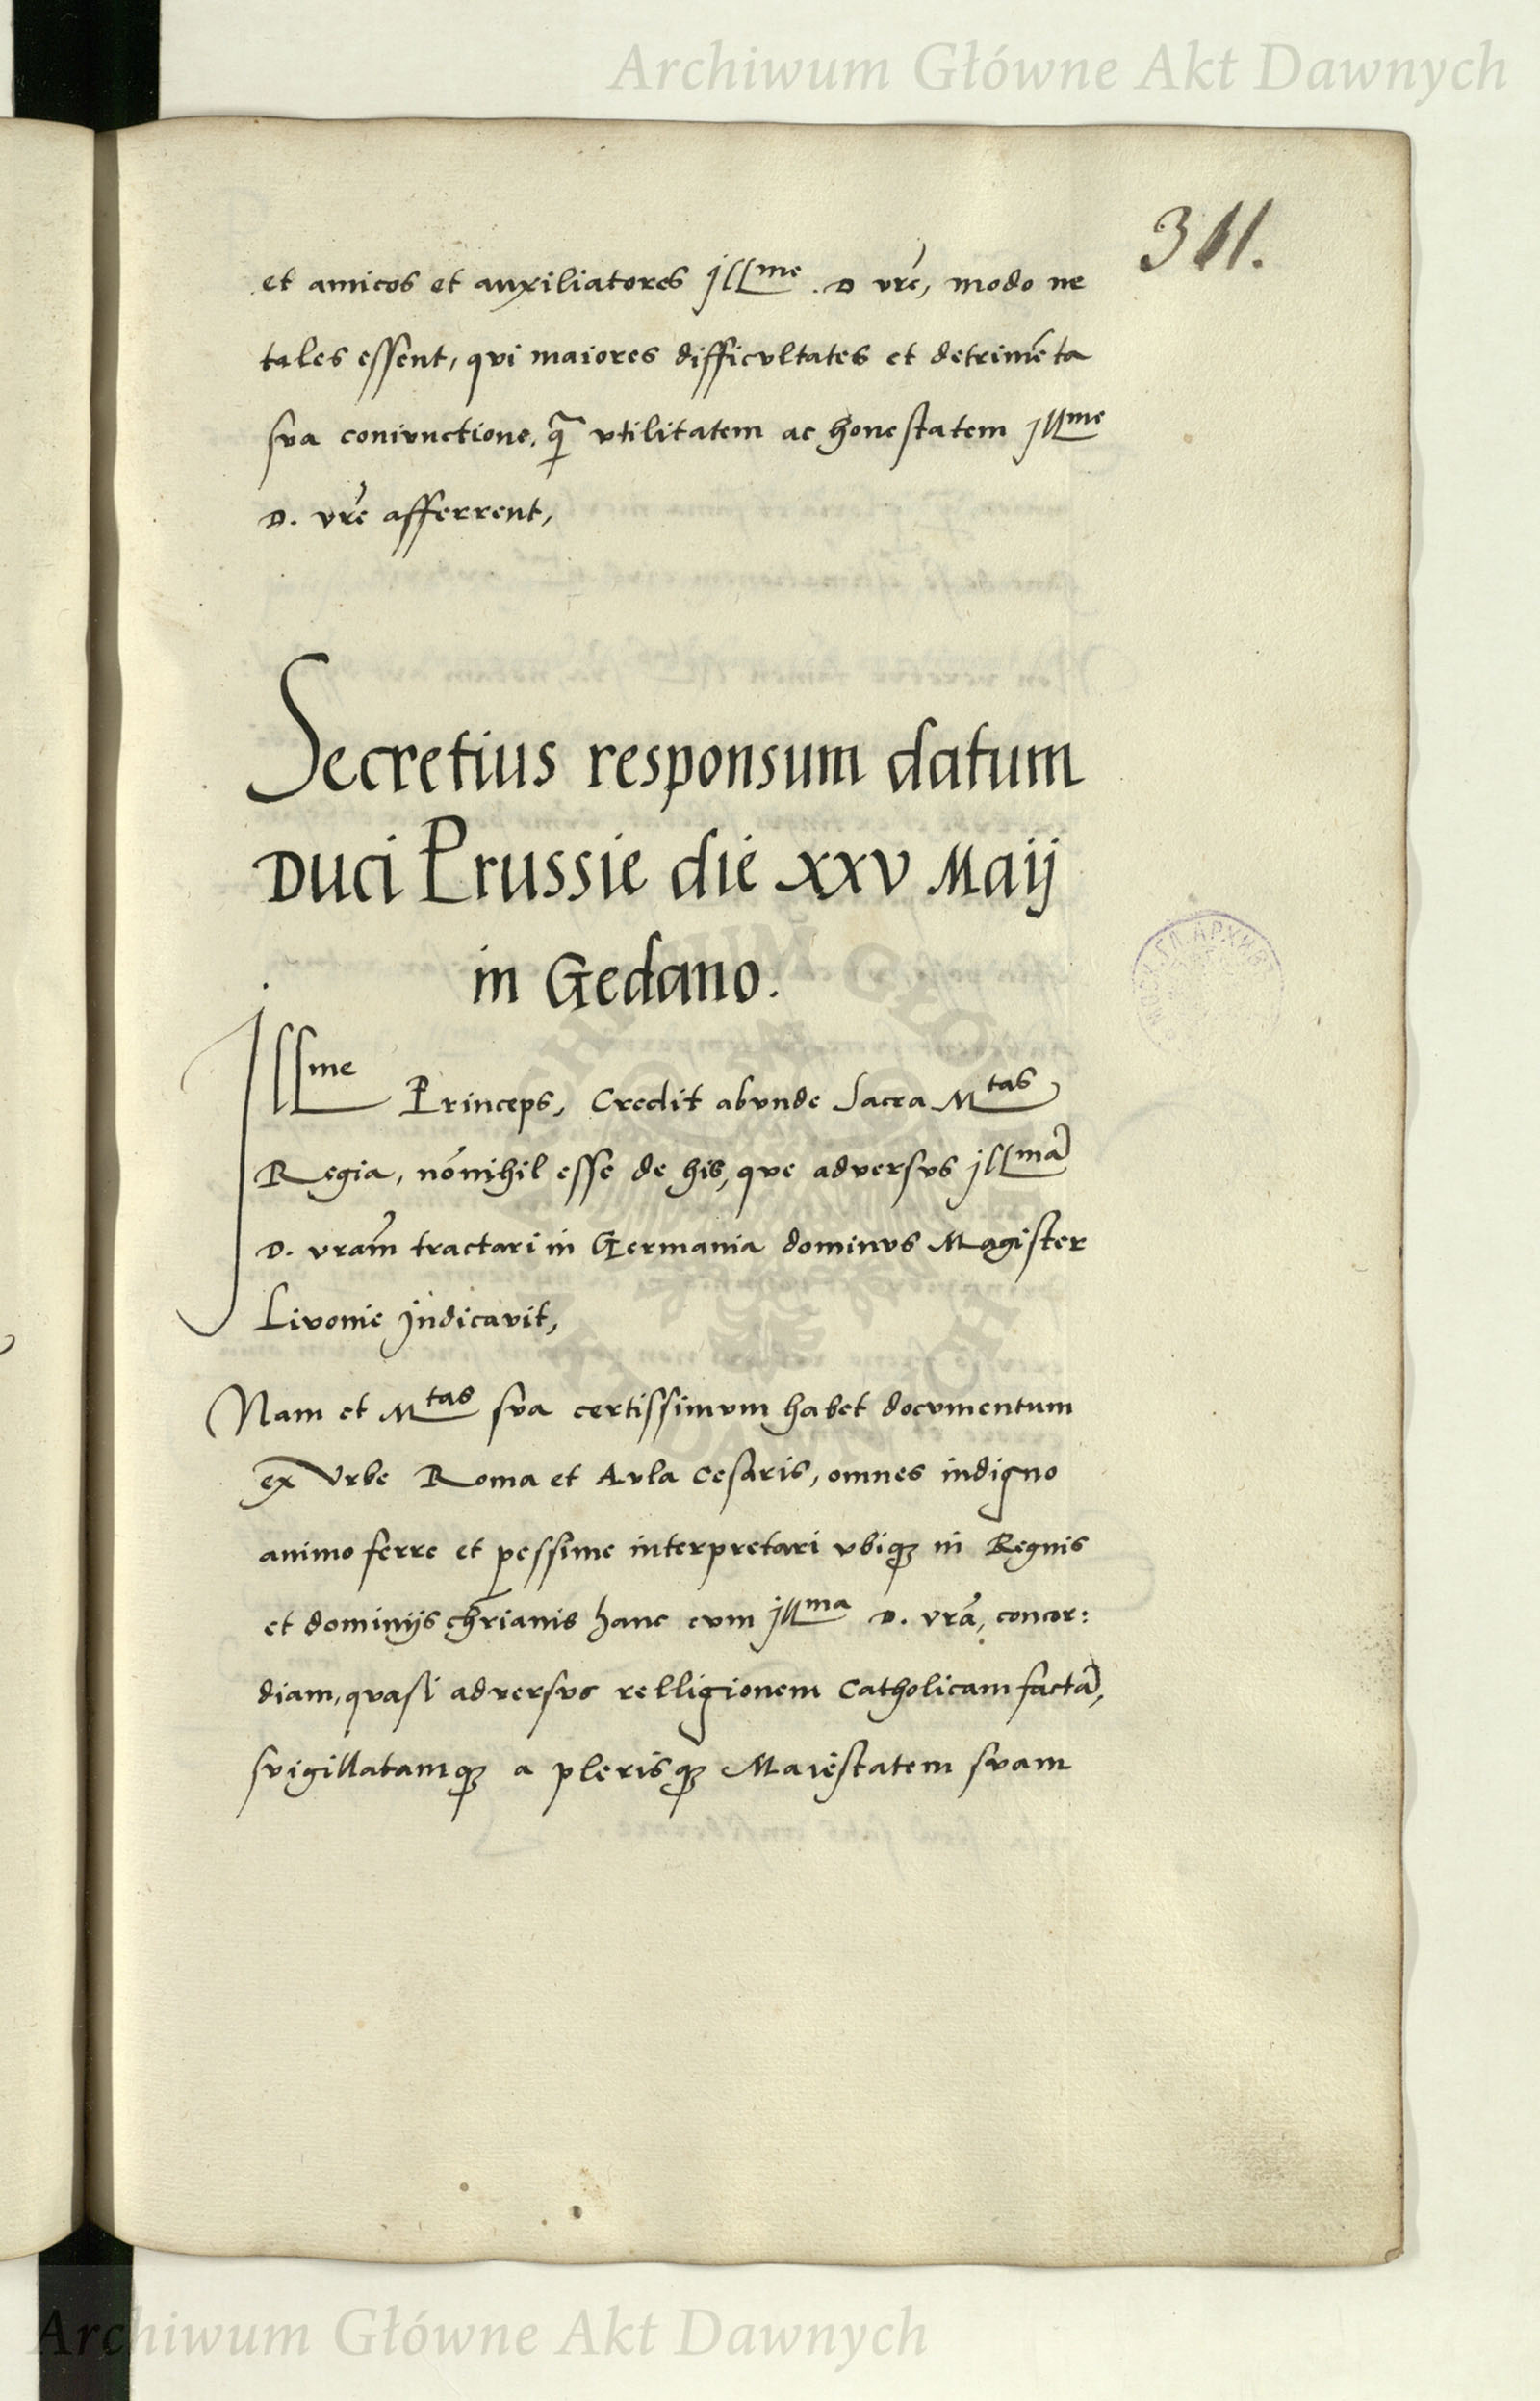 Archiwum Główne Akt Dawnych
311.
et amicos et auxiliatores Jllme . D vrē, modo ne
tales essent, qui maiores difficvltates et detrimēta
sva conivnctione, q̃ vtilitatem ac honestatem Jllme
D. vrē afferrent,
Secretius responsum datum
Duci Prussie die xxv Maij
in Gedano.
Jllme Princeps, Credit abvnde Sacra Mtas
Regia, nōnihil esse de his, que adversvs jllmā
D. vram̄ tractari in Germania dominvs Magister
Livonie Jndicavit,
Nam et Mtas sva certissimvm habet docvmentum
ex Vrbe Roma et Avla Cesaris, omnes indigno
animo ferre et pessime interpretari vbiqꝫ in Regnis
et dominijs chr̄ianis hanc cvm jllma D. vrā, concor:
diam, qvasi adversvs relligionem Catholicam factā,
svigillatamqꝫ a plerisqꝫ Maiestatem svam
Archiwum Główne Akt Dawnych